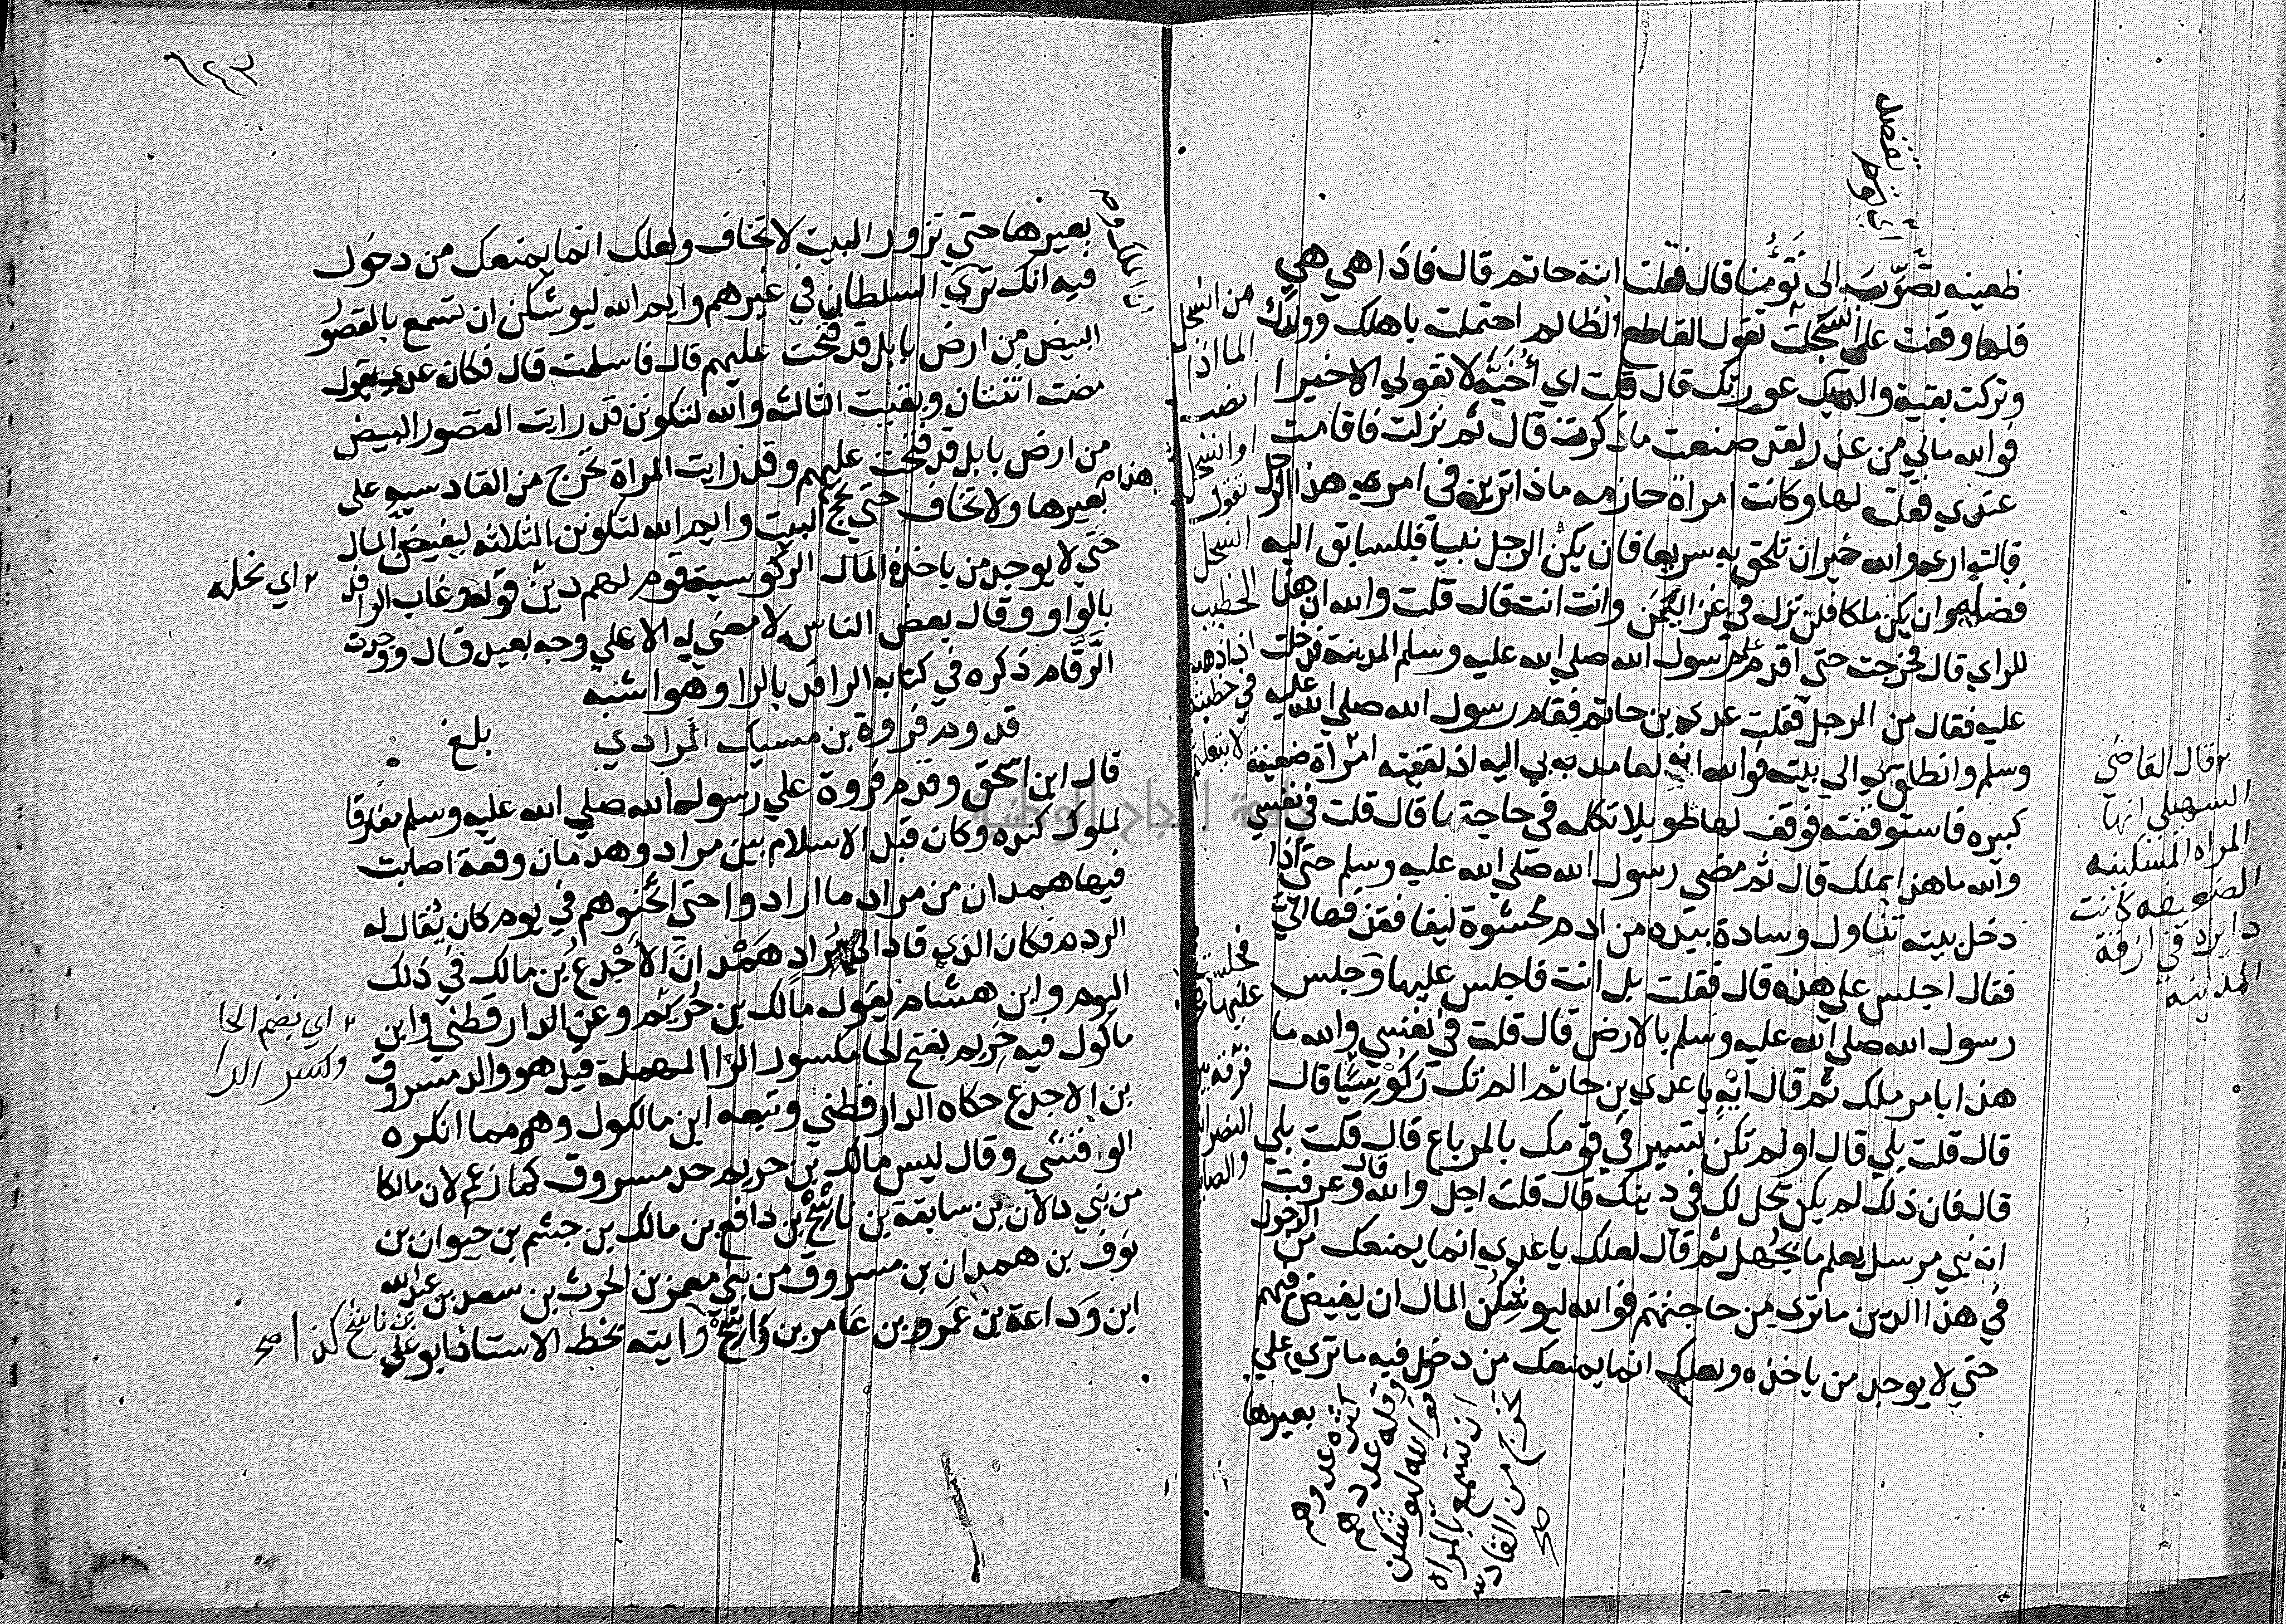 ظعينه تصوّب الى تؤمنا قال فقلت ابنة حاتم قال فاذا هي هي
فلما وقفت على انسحلت تقول القاطع الظالم احتملت باهلك وولدك
وتركت بقية والدك عورتك قال قلت اي أُخَيَّه لا تقولي الا خيرا
فوالله مالي من عذر لقد صنعت ما ذكرت قال ثم نزلت فاقامت
عندي فقلت لها وكانت امراة حازمه ماذا ترين في امر هذا الرجل
قالت ارى والله خير ان تلحق به سريعا فان يكن الرجل نبيا فللسابق اليه
فضله وان يكن ملكا فلن تزل في عز اليمن وانت انت قال قلت والله ان هذا
للراي قال فخرجت حتى اقدم على رسول الله صلي الله عليه وسلم المدينة فدخلت
عليه فقال من الرجل فقلت عدي بن حاتم فقام رسول الله صلي الله عليه
وسلم وانطلق بي الى بيته فوالله انه لعامد بي اليه اذ لقيته امراة ضعيفة
كبيره فاستوقفته فوقف لها طويلا تكلمه في حاجتها قال قلت في نفسي
والله ما هذا بملك قال ثم مضي رسول الله صلي الله عليه وسلم حتى اذا
دخل بيته تناول وسادة بيده من ادم محشوة ليفا فقذفها اليّ
فقال اجلس علي هذه قال فقلت بل انت فاجلس عليها وجلس
رسول الله صلي الله عليه وسلم بالارض قال قلت في نفسي والله ما
هذا بامر ملك ثم قال ايه يا عدي بن حاتم الم تك ركوسيّا قال
قال قلت بلي قال اولم تكن تسير في قومك بالمرباع قال قلت بلي
قال فان ذلك لم يكن تحل لك في دينك قال قلت اجل والله قال وعرفت
انه نبي مرسل يعلم ما يُجهل ثم قال لعلك يا عدي انما يمنعك من الدخول
في هذا الدين ما ترى من حاجتهم فوالله ليوشكن المال ان يفيض فيهم
حتي لا يوجد من ياخذه ولعلك انما يمنعك من دخول فيه ما تري علي
بعيرها
كثرة عدوهم
وقله عددهم
فوالله ليوشكن
ان تسمع بالمراه
تخرج من القادسـ
صح
اي تقصد
من انسحل
الما اذا
انصب
او انسحل
تقول
انسحل
الخطيب
في خطبته
فجلست
عليها صح
فرقه بين
النصرانية
والصابـ
وقال القاضي
السهيلي انها
المراه المسكينه
الضعيفه كانت
دايره في ازقة
المدينه
٢٤٣
بعيرها حتي تزور البيت لا تخاف ولعلك انما يمنعك من دخول
فيه انك تري السلطان في غيرهم وايم الله ليوشكن ان تسمع بالقصور
البيض من ارض بابل قد فتحت عليهم قال فاسلمت قال فكان عدي يقول
مضت اثنتان وبقيت الثالثه والله لتكونن قد رايت القصور البيض
من ارض بابل قد فتحت عليهم وقد رايت المراة تخرج من القادسيه على
بعيرها ولا تخاف حتي تحج البيت وايم الله لتكونن الثلاثه ليفيض المال
حتي لا يوجد من ياخذه المال الركوسية قوم لهم دين قوله وغاب الرافد
بالواو وقال بعض الناس لا معني له الا علي وجه بعيد قال ووجدت
الرَّقّام ذكره في كتابه الرافد بالرا وهو اشبه
قدوم فروة بن مسيك المرادي بلغ
قال ابن اسحق وقدم فروة علي رسول الله صلي الله عليه وسلم مفارقا
لملوك كنده وكان قبل الاسلام بين مراد وهمدان وقعة اصابت
فيها همدان من مراد ما ارادوا حتي اثخنوهم في يوم كان يُقال له
الردم فكان الذي قاد الى مُراد هَمْدان الاَجْدع بن مالك في ذلك
اليوم وابن هشام يقول مالك بن حُريم وعن الدارقطني وابن
ماكول فيه حَريم بفتح الحا مكسور الرا المهملة قيل هو والد مسروق
بن الاجدع حكاه الدارقطني وتبعه ابن مالكول وهو مما انكره
الوقشي وقال ليس مالك بن حريم جد مسروق كما زعم لان مالكا
من بني دالان بن سابقة بن ناشح بن دافع بن مالك بن جشم بن حيوان بن
نوف بن همدان بن مسروق من بني معمر بن الحرث بن سعد بن عبدالله
ابن وَداعة بن عَمرو بن عَامر بن ناشح رايته بخط الاستاذ ابو علي
بن ناشح كذا صح
اي نحله
اي بضم الحا
وكسر الرا
هذا